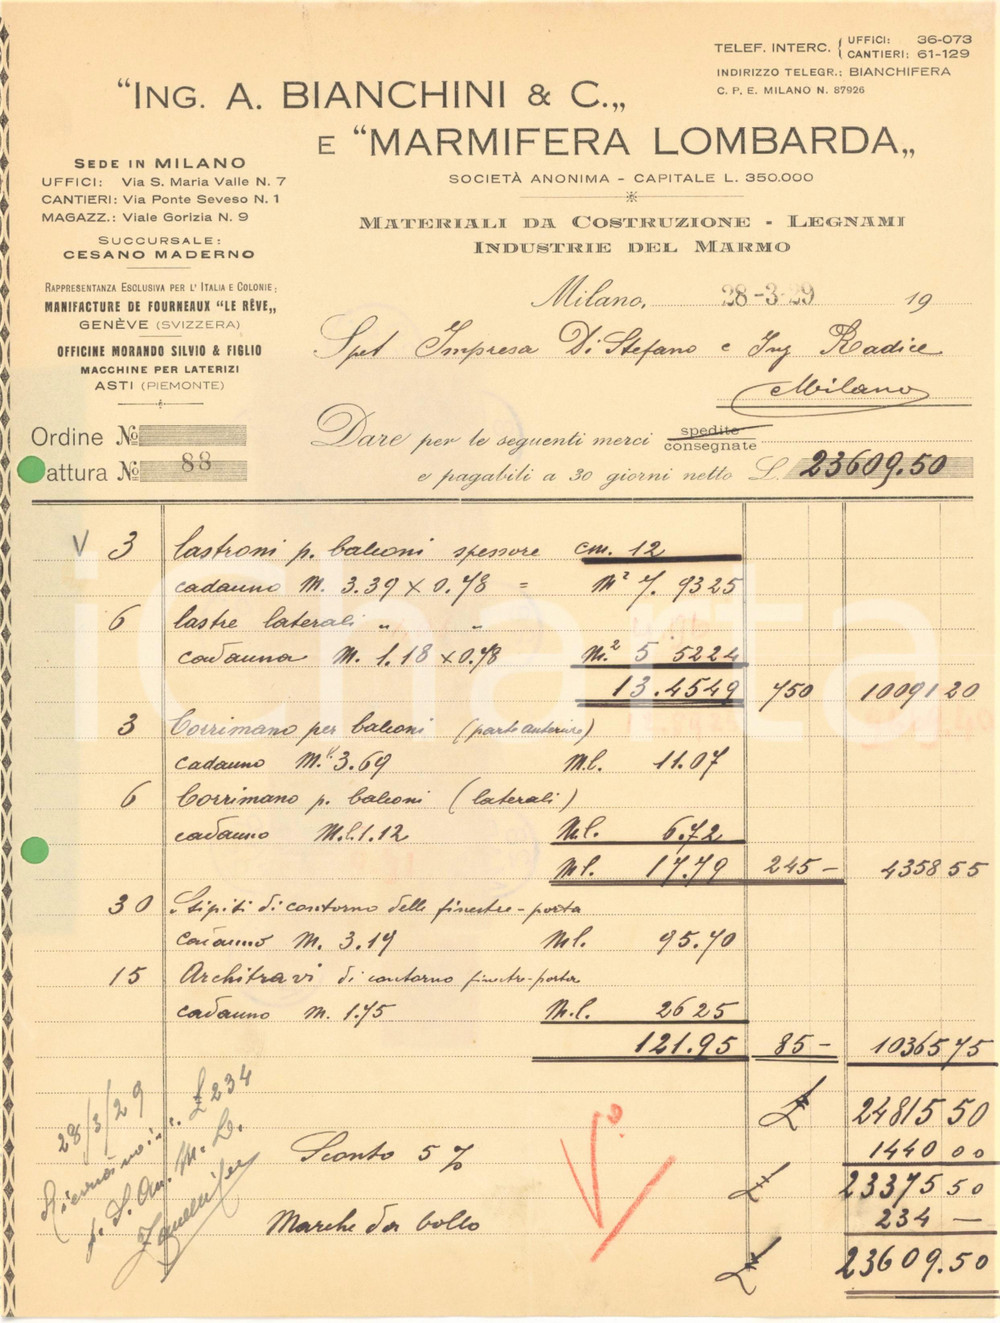 TELEF. INTERC. { UFFICI: 36-073
CANTIERI: 61-129
INDIRIZZO TELEGR.: BIANCHIFERA
C. P. E. MILANO N. 87926
"ING. A. BIANCHINI & C.„
E "MARMIFERA LOMBARDA„
SOCIETÀ ANONIMA - CAPITALE L. 350.000
MATERIALI DA COSTRUZIONE - LEGNAMI
INDUSTRIE DEL MARMO
SEDE IN MILANO
UFFICI: Via S. Maria Valle N. 7
CANTIERI: Via Ponte Seveso N. 1
MAGAZZ.: Viale Gorizia N. 9
SUCCURSALE:
CESANO MADERNO
RAPPRESENTANZA ESCLUSIVA PER L'ITALIA E COLONIE:
MANIFACTURE DE FOURNEAUX "LE RÊVE„
GENÈVE (SVIZZERA)
OFFICINE MORANDO SILVIO & FIGLIO
MACCHINE PER LATERIZI
ASTI (PIEMONTE)
Milano, 28-3-29 19
Spet Impresa Di Stefano e Ing Radice
Milano
Ordine No
Fattura No 88
Dare per le seguenti merci spedite
consegnate
e pagabili a 30 giorni netto L. 23609.50
V 3 lastroni p. balconi spessore cm. 12
cadauno M. 3.39 x 0.78 = M² 7.9325
6 lastre laterali " "
cadauna M. 1.18 x 0.78 M.² 5 5224
13.4549 750 10091 20
3 Corrimano per balconi (parte anteriore)
cadauno M.l 3.69 Ml. 11.07
6 Corrimano p. balconi (laterali)
cadauno M.l. 1.12 Ml. 6.72
Ml. 17.79 245 - 4358 55
30 Stipiti di contorno delle finestre-porta
cadauno M. 3.19 Ml. 95.70
15 Architravi di contorno finestre-porta
cadauno M. 1.75 M.l. 26 25
121.95 85 - 10365 75
L 24815 50
Sconto 5 % 1440 00
L 23375 50
Marche da bollo 234 -
L 23609.50
28/3/29
£ 234
V°
iCharta